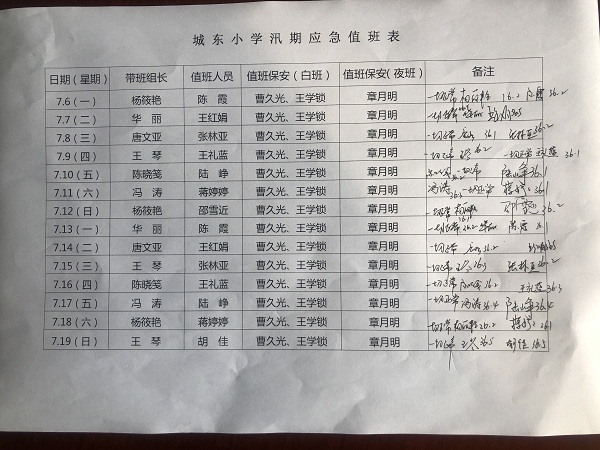 城东小学汛期应急值班表
日期（星期） 带班组长 值班人员 值班保安（白班） 值班保安（夜班） 备注
7.6（一） 杨筱艳 陈 霞 曹久光、王学锁 章月明 一切正常 36.2
7.7（二） 华 丽 王红娟 曹久光、王学锁 章月明 一切正常
7.8（三） 唐文亚 张林亚 曹久光、王学锁 章月明 一切正常 36.1 张林亚 36.2
7.9（四） 王 琴 王礼蓝 曹久光、王学锁 章月明 一切正常 王琴 36.2 一切正常 王礼蓝 36.1
7.10（五） 陈晓笑 陆 峥 曹久光、王学锁 章月明 一切正常 陆峥 36.1
7.11（六） 冯 涛 蒋婷婷 曹久光、王学锁 章月明 冯涛 36.5 一切正常 蒋婷婷 36.1
7.12（日） 杨筱艳 邵雪近 曹久光、王学锁 章月明 一切正常 36.2
7.13（一） 华 丽 陈 霞 曹久光、王学锁 章月明 一切正常 36.2
7.14（二） 唐文亚 王红娟 曹久光、王学锁 章月明 一切正常 36.2
7.15（三） 王 琴 张林亚 曹久光、王学锁 章月明 一切正常 王琴 36.5 张林亚 36.2
7.16（四） 陈晓笑 王礼蓝 曹久光、王学锁 章月明 一切正常 36.2 王礼蓝 36.3
7.17（五） 冯 涛 陆 峥 曹久光、王学锁 章月明 一切正常 冯涛 36.4 陆峥 36.4
7.18（六） 杨筱艳 蒋婷婷 曹久光、王学锁 章月明 一切正常 杨筱艳 36.2 蒋婷婷 36.1
7.19（日） 王 琴 胡 佳 曹久光、王学锁 章月明 一切正常 王琴 36.5 胡佳 36.5